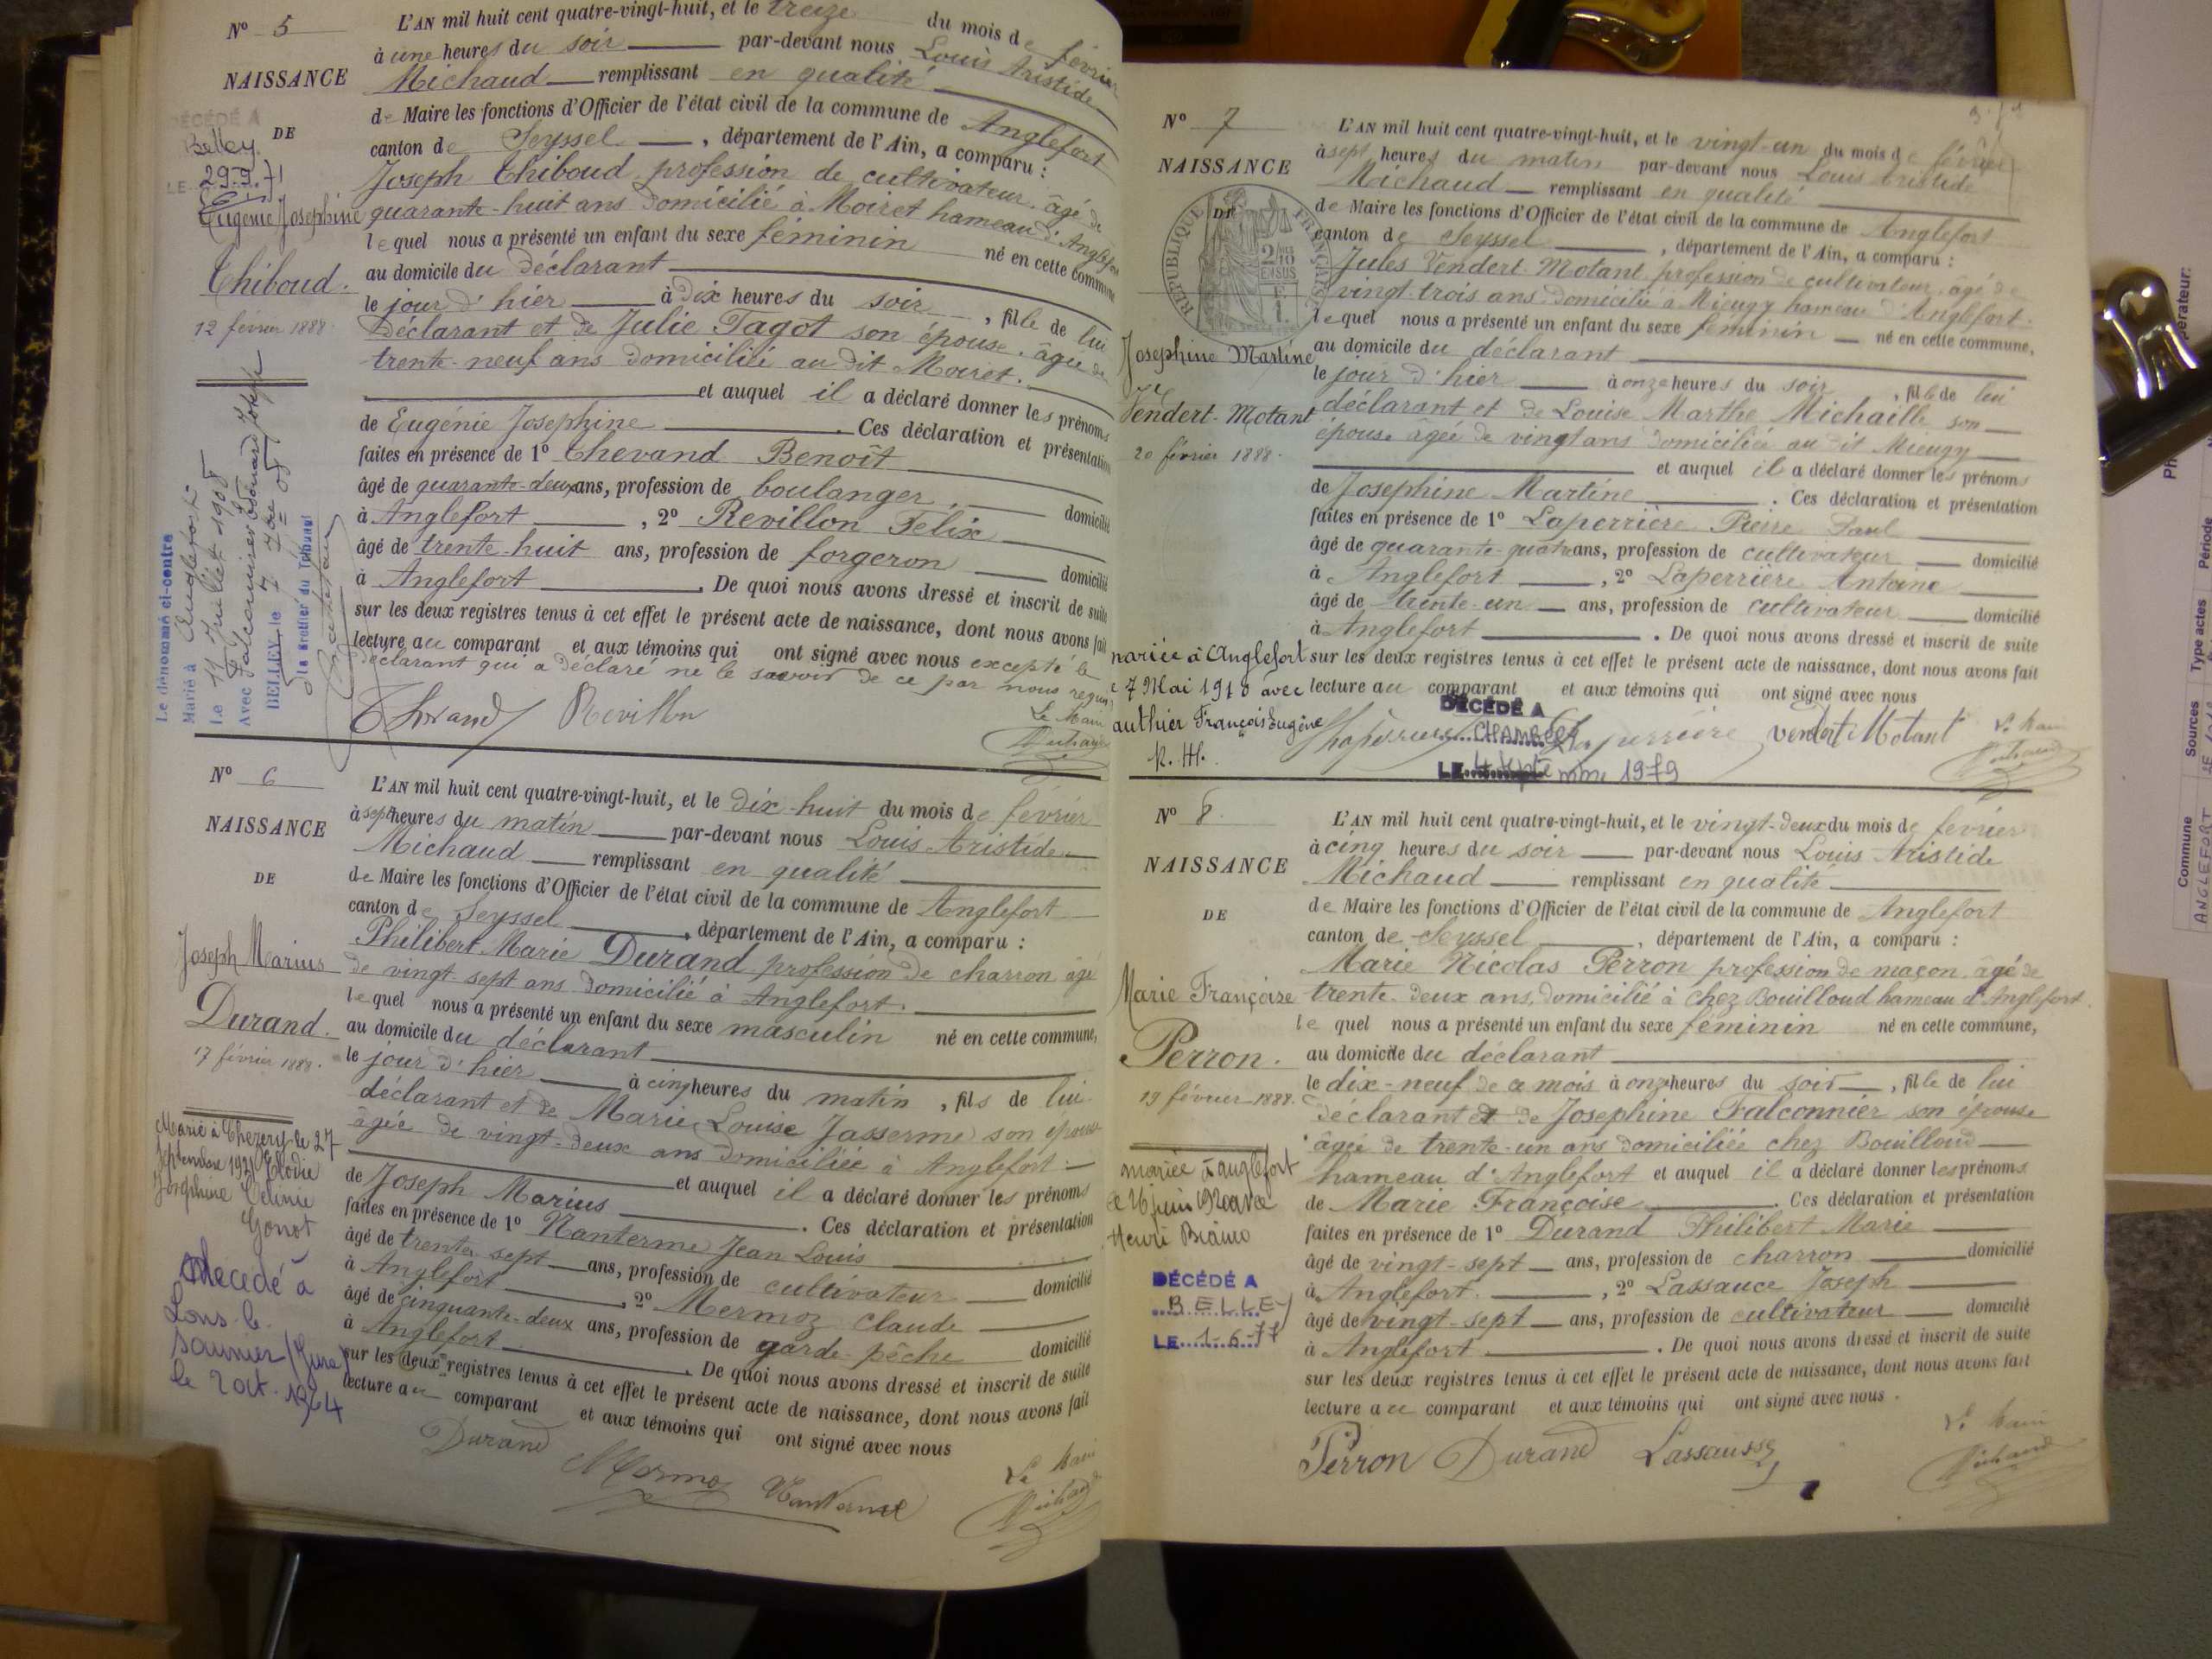 N° 5
NAISSANCE
DE
DÉCÉDÉ A
Belley
LE 29.9.71
Eugénie Josephine
Thiboud.
12 février 1888.
Le dénommé ci-contre
Marié à Anglefort
Le 11 Juillet 1908
Avec Falconnier Edouard Joseph
BELLEY, le
Le Greffier du Tribunal
L'AN mil huit cent quatre-vingt-huit, et le treize du mois de février
à une heures du soir par-devant nous Louis Aristide
Michaud remplissant en qualité
de Maire les fonctions d'Officier de l'état civil de la commune de Anglefort
canton de Seyssel, département de l'Ain, a comparu :
Joseph Thiboud profession de cultivateur, âgé de
quarante-huit ans domicilié à Moiret hameau d'Anglefort
lequel nous a présenté un enfant du sexe féminin né en cette commune
au domicile du déclarant
le jour d'hier à dix heures du soir, fille de lui
déclarant et de Julie Tagot son épouse, âgée de
trente-neuf ans domiciliée au dit Moiret.
et auquel il a déclaré donner les prénoms
de Eugénie Josephine. Ces déclaration et présentation
faites en présence de 1° Thevand Benoît
âgé de quarante-deux ans, profession de boulanger domicilié
à Anglefort, 2° Revillon Felix
âgé de trente-huit ans, profession de forgeron domicilié
à Anglefort. De quoi nous avons dressé et inscrit de suite
sur les deux registres tenus à cet effet le présent acte de naissance, dont nous avons fait
lecture au comparant et aux témoins qui ont signé avec nous excepté le
déclarant qui a déclaré ne le savoir de ce par nous requis
Revillon
Le Maire
Michaud
N° 6
NAISSANCE
DE
Joseph Marius
Durand.
17 février 1888.
Marié à Chezery le 27
Septembre 1921 Elodie
Joséphine Célinie
Gonot
Décédé à
Lons-le-
Saunier (Jura)
le 2 oct. 1964
L'AN mil huit cent quatre-vingt-huit, et le dix-huit du mois de février
à sept heures du matin par-devant nous Louis Aristide
Michaud remplissant en qualité
de Maire les fonctions d'Officier de l'état civil de la commune de Anglefort
canton de Seyssel, département de l'Ain, a comparu :
Philibert Marie Durand profession de charron âgé
de vingt-sept ans domicilié à Anglefort.
lequel nous a présenté un enfant du sexe masculin né en cette commune,
au domicile du déclarant
le jour d'hier à cinq heures du matin, fils de lui
déclarant et de Marie Louise Jasserme son épouse
âgée de vingt-deux ans domiciliée à Anglefort
et auquel il a déclaré donner les prénoms
de Joseph Marius. Ces déclaration et présentation
faites en présence de 1° Nanterme Jean Louis
âgé de trente sept ans, profession de cultivateur domicilié
à Anglefort, 2° Mermoz Claude
âgé de cinquante-deux ans, profession de garde-pêche domicilié
à Anglefort. De quoi nous avons dressé et inscrit de suite
sur les deux registres tenus à cet effet le présent acte de naissance, dont nous avons fait
lecture au comparant et aux témoins qui ont signé avec nous
Durand Mermoz Nanterme
Le Maire
Michaud
N° 7
NAISSANCE
DE
RÉPUBLIQUE FRANÇAISE
Josephine Martine
Vendert-Motant
20 février 1888.
mariée à Anglefort
7 Mai 1910 avec
authier François Eugène
L'AN mil huit cent quatre-vingt-huit, et le vingt-un du mois de février
à sept heures du matin par-devant nous Louis Aristide
Michaud remplissant en qualité
de Maire les fonctions d'Officier de l'état civil de la commune de Anglefort
canton de Seyssel, département de l'Ain, a comparu :
Jules Vendert-Motant profession de cultivateur, âgé de
vingt-trois ans domicilié à Mieugy hameau d'Anglefort.
lequel nous a présenté un enfant du sexe féminin né en cette commune,
au domicile du déclarant
le jour d'hier à onze heures du soir, fille de lui
déclarant et de Louise Marthe Michaille son
épouse âgée de vingt ans domiciliée au dit Mieugy
et auquel il a déclaré donner les prénoms
de Josephine Martine. Ces déclaration et présentation
faites en présence de 1° Laperrière Pierre Paul
âgé de quarante-quatre ans, profession de cultivateur domicilié
à Anglefort, 2° Laperrière Antoine
âgé de trente-un ans, profession de cultivateur domicilié
à Anglefort. De quoi nous avons dressé et inscrit de suite
sur les deux registres tenus à cet effet le présent acte de naissance, dont nous avons fait
lecture au comparant et aux témoins qui ont signé avec nous
DÉCÉDÉ A
CHAMBERY
LE 4 Septembre 1979
Laperrière Laperrière Vendert Motant
Le Maire
Michaud
N° 8
NAISSANCE
DE
Marie Françoise
Perron.
19 février 1888.
mariée à Anglefort
le 26 juin 1920 avec
Henri
DÉCÉDÉ A
BELLEY
LE 1-6-77
L'AN mil huit cent quatre-vingt-huit, et le vingt-deux du mois de février
à cinq heures du soir par-devant nous Louis Aristide
Michaud remplissant en qualité
de Maire les fonctions d'Officier de l'état civil de la commune de Anglefort
canton de Seyssel, département de l'Ain, a comparu :
Marie Nicolas Perron profession de maçon, âgé de
trente-deux ans, domicilié à chez Bouilloud hameau d'Anglefort.
le quel nous a présenté un enfant du sexe féminin né en cette commune,
au domicile du déclarant
le dix-neuf de ce mois à onze heures du soir, fille de lui
déclarant et de Josephine Falconnier son épouse
âgée de trente-un ans domiciliée chez Bouilloud
hameau d'Anglefort et auquel il a déclaré donner les prénoms
de Marie Françoise. Ces déclaration et présentation
faites en présence de 1° Durand Philibert Marie
âgé de vingt-sept ans, profession de charron domicilié
à Anglefort, 2° Lassauce Joseph
âgé de vingt-sept ans, profession de cultivateur domicilié
à Anglefort. De quoi nous avons dressé et inscrit de suite
sur les deux registres tenus à cet effet le présent acte de naissance, dont nous avons fait
lecture au comparant et aux témoins qui ont signé avec nous.
Perron Durand Lassausse
Le Maire
Michaud
Commune
ANGLEFORT
Sources
Type actes
Période